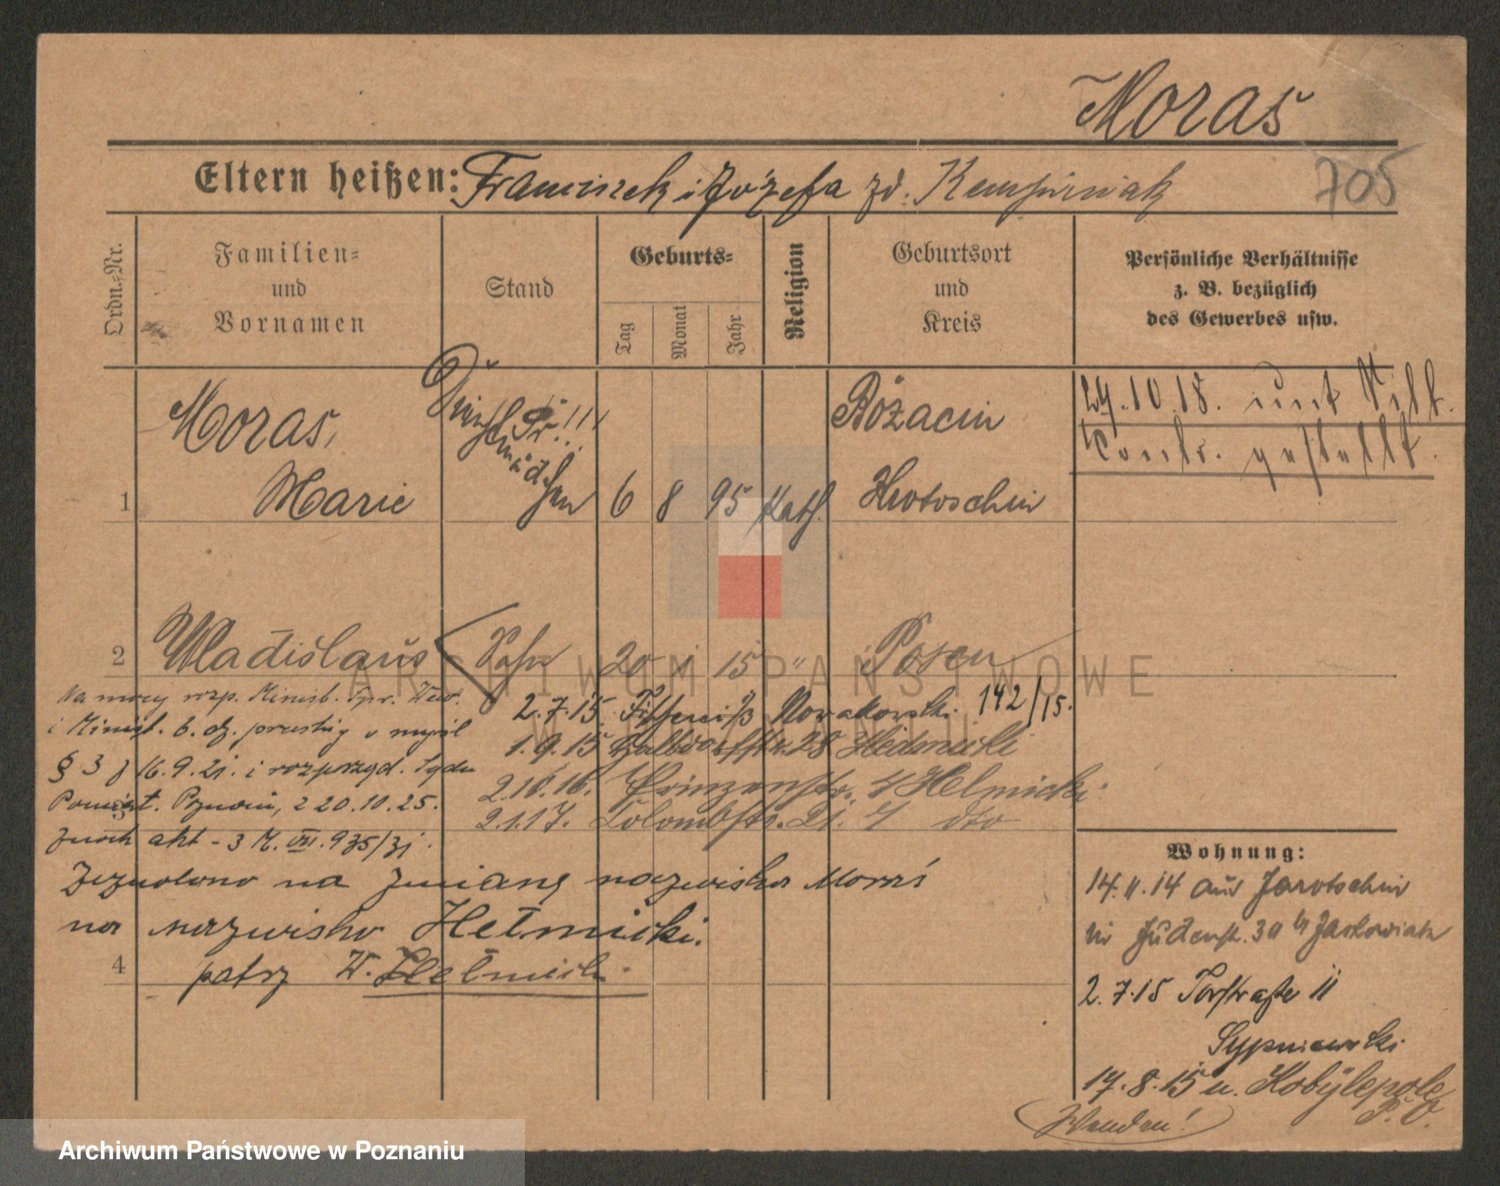 Moraś
705
Eltern heißen: Franciszek i Józefa zd.
Ordn.-Nr.
Familien-
und
Vornamen
Stand
Geburts-
Tag
Monat
Jahr
Religion
Geburtsort
und
Kreis
Persönliche Verhältnisse
z. B. bezüglich
des Gewerbes usw.
1
Moraś,
Marie
Dienstmädchen
6 8 95 kath.
Bożacin
Krotoschin
29.10.18. unt
Contr. gestellt.
2
Wladislaus
Sohn
20 1 15 "
Posen
2.7.15 Nowakowski 142/15.
1.9.15 28
2.10.16. Prinzenstr. 4 Helmicki
2.1.17. Colombstr. 21. 4 dto
Na mocy rozp. Minist. Spr. Wew.
i Minist. b. dz. pruskiej w myśl
§ 3 z 16.9.21. i rozporząd. Sądu
Powiat. Poznań, z 20.10.25.
znak akt - 3 M. VII. 935/31.
Zezwolono na zmianę nazwiska Moraś
na nazwisko Helmicki.
4
patrz W. Helmicki.
Wohnung:
14.11.14 aus Jarotschin
in Judenstr. 30 b/
2.7.15 Torstraße 11
Sypniewski
17.8.15 n. Kobylepole
P. O.
Wenden!
ARCHIWUM PAŃSTWOWE
W POZNANIU
Archiwum Państwowe w Poznaniu